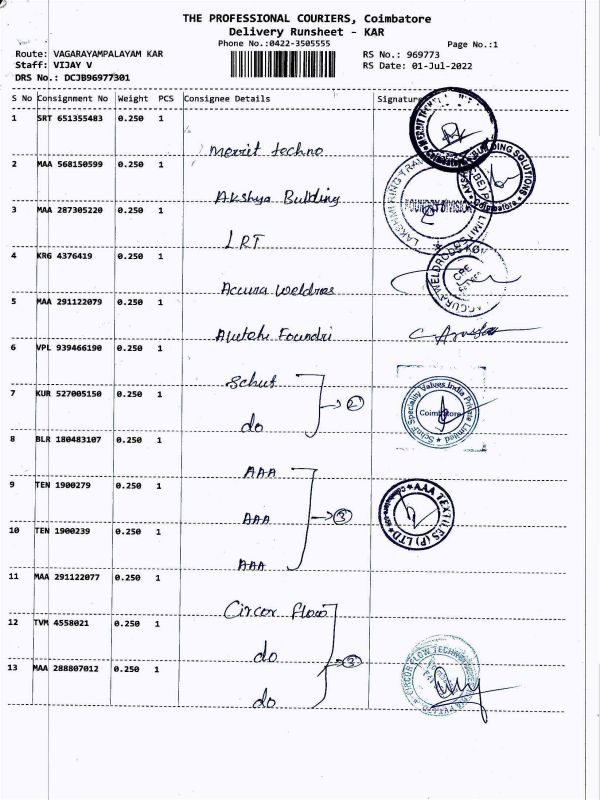 THE PROFESSIONAL COURIERS, Coimbatore
Delivery Runsheet - KAR
Phone No.:0422-3505555
Page No.:1
Route: VAGARAYAMPALAYAM KAR
RS No.: 969773
Staff: VIJAY V
RS Date: 01-Jul-2022
DRS No.: DCJB96977301
S No Consignment No Weight PCS Consignee Details Signature
1 SRT 651355483 0.250 1
Merrit techno
2 MAA 568150599 0.250 1
Akshya Building
3 MAA 287305220 0.250 1
LRT
4 KRG 4376419 0.250 1
Accura weldros
5 MAA 291122079 0.250 1
Foundri
6 VPL 939466190 0.250 1
Schuf
7 KUR 527005150 0.250 1
do
→ 2
Schuf Speciality Valves India Private Limited
Coimbatore
8 BLR 180483107 0.250 1
AAA
9 TEN 1900279 0.250 1
AAA
→ 3
AAA TEXTILES (P) LTD
10 TEN 1900239 0.250 1
AAA
11 MAA 291122077 0.250 1
Circor flow
12 TVM 4558021 0.250 1
do
→ 3
CIRCOR FLOW
13 MAA 288807012 0.250 1
do